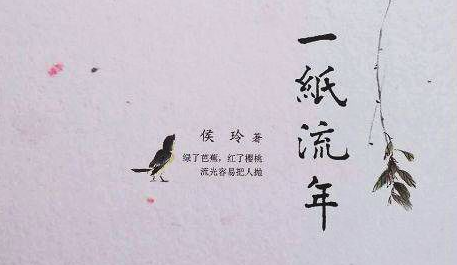 一紙流年
侯玲 著
绿了芭蕉，红了樱桃
流光容易把人抛